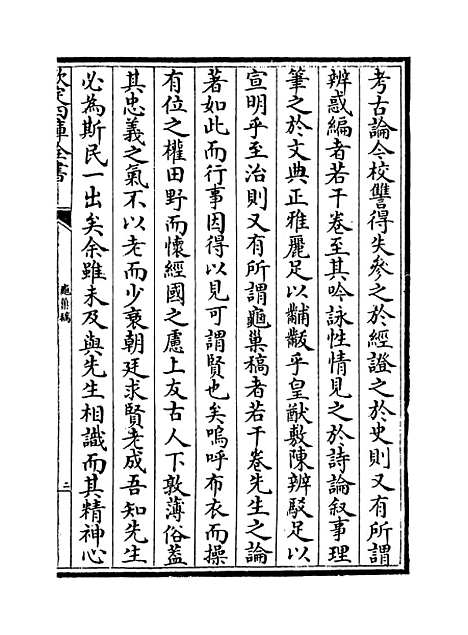 考古論今校讐得失參之於經證之於史則又有所謂
辨惑編者若干卷至其吟詠性情見之於詩論叙事理
筆之於文典正雅麗足以黼黻乎皇猷敷陳辨駁足以
宣明乎至治則又有所謂龜巢稿者若干卷先生之論
著如此而行事因得以見可謂賢也矣嗚呼布衣而操
有位之權田野而懷經國之慮上友古人下敦薄俗葢
其忠義之氣不以老而少衰朝廷求賢老成吾知先生
必為斯民一出矣余雖未及與先生相識而其精神心
欽定四庫全書
龜巢稿
二